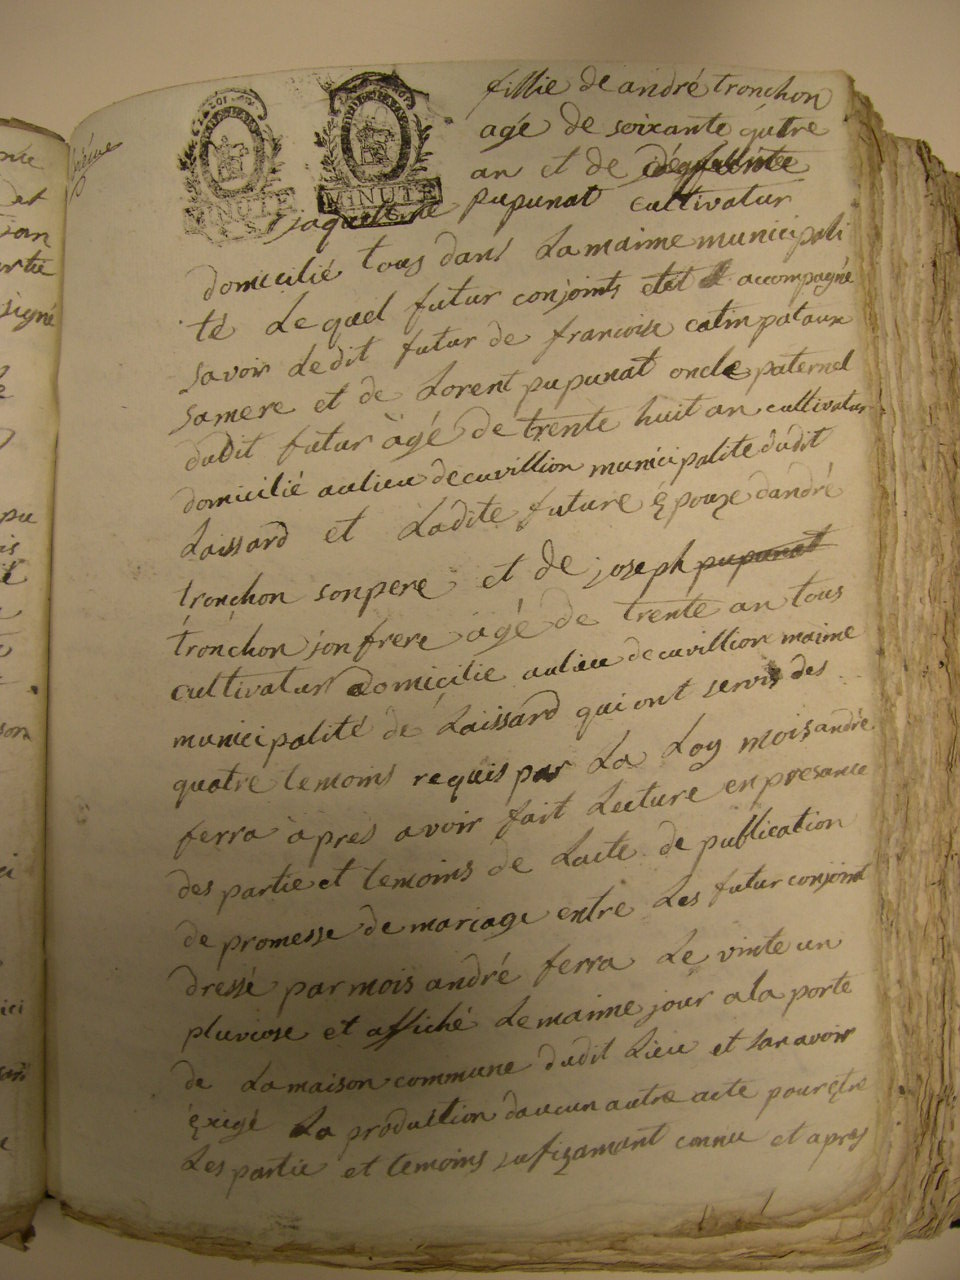 fillie de andré tronchon
agé de soixante qutre
an et de
jaqueline pupunat cultivatur
domicilié tous dans La maime municipali
té Lequel futur conjoints etet accompagné
savoir Ledit futur de francoise catin pataux
samere et de Lorent pupunat oncle paternel
dudit futur àgé de trente huit an cultivatur
domicilié aulieu decuvillion municipalité dudit
Laissard et Ladite future Epouze dandré
tronchon sonpere et de joseph pupunat
tronchon sonfrere agé de trente an tous
cultivatur domicilie aulieu decuvillion maime
municipalité de Laissard qui ont servis des
quatre temoins requis par La Loy moisandré
ferra àpres avoir fait Lecture enpresance
des partie et temoins de Lacte de publication
de promesse de mariage entre Les futur conjoint
dressé parmois andré ferra Le vinte un
pluviose et affiché Lemaime jour ala porte
de Lamaison commune dudit Lieu et san avoir
Exigé La production daucun autre acte pour Etre
Les partie et temoins sufizamant connu et apres
MINUTE
MINUTE